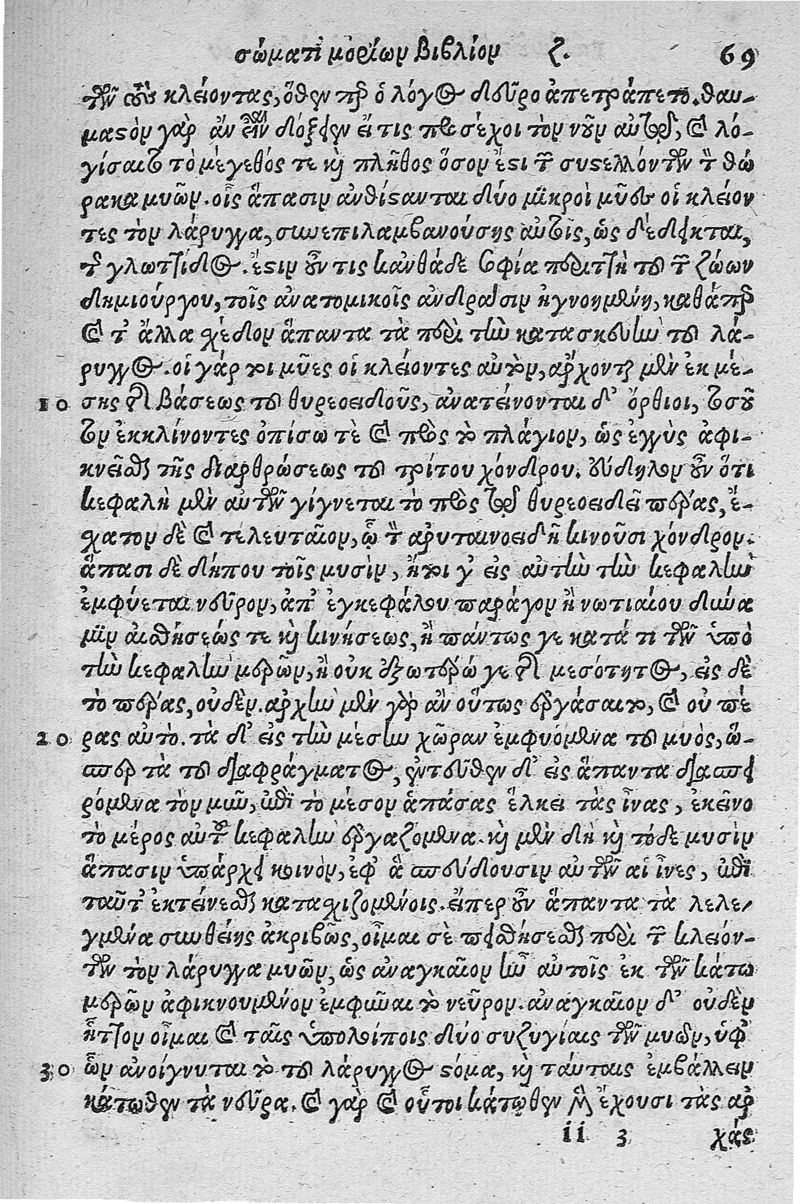 σώματι μορίων βιβλίον ζ. 69
τῶν αὐτὸν κλείοντας, ὅθεν περ ὁ λόγος δεῦρο ἀπετράπετο. θαυ-
μαστὸν γὰρ ἂν εἶναι δόξειεν εἴ τις προσέχοι τὸν νοῦν αὐτοῖς, καὶ λο-
γίσαιτο τὸ μέγεθός τε καὶ πλῆθος ὅσον ἐστὶ τῶν συστελλόντων τὸν θώ
ρακα μυῶν. οἷς ἅπασιν ἀνθίστανται δύο μικροὶ μύες οἱ κλείον
τες τὸν λάρυγγα, συνεπιλαμβανούσης αὐτοῖς, ὡς δέδεικται,
τῆς γλωττίδος. ἔστιν οὖν τις κἀνθάδε σοφία περιττὴ τοῦ τῶν ζώων
δημιουργοῦ, τοῖς ἀνατομικοῖς ἀνδράσιν ἠγνοημένη, καθάπερ
καὶ τἄλλα σχεδὸν ἅπαντα τὰ περὶ τὴν κατασκευὴν τοῦ λά-
ρυγγος. οἱ γάρ τοι μύες οἱ κλείοντες αὐτὸν, ἄρχονται μὲν ἐκ μέ-
10 σης τῆς βάσεως τοῦ θυρεοειδοῦς, ἀνατείνονται δ' ὄρθιοι, τοσοῦ
τον ἐκκλίνοντες ὀπίσω τε καὶ πρὸς τὸ πλάγιον, ὡς ἐγγὺς ἀφι-
κνεῖσθαι τῆς διαρθρώσεως τοῦ τρίτου χόνδρου. εὔδηλον οὖν ὅτι
κεφαλὴ μὲν αὐτῶν γίγνεται τὸ πρὸς τῷ θυρεοειδεῖ πέρας, ἔ-
σχατον δὲ καὶ τελευταῖον, ᾧ τὸν ἀρυταινοειδῆ κινοῦσι χόνδρον.
ἅπασι δὲ δήπου τοῖς μυσὶν, ἤτοι γ' εἰς αὐτὴν τὴν κεφαλὴν
ἐμφύεται νεῦρον, ἀπ' ἐγκεφάλου παράγον ἢ νωτιαίου δύνα
μιν αἰσθήσεώς τε καὶ κινήσεως, ἢ πάντως γε κατά τι τῶν ὑπὸ
τὴν κεφαλὴν μερῶν, ἢ οὐκ ἐξωτέρω γε τῆς μεσότητος, εἰς δὲ
τὸ πέρας, οὐδέν. ἀρχὴν μὲν γὰρ ἂν οὕτως ἐργάσαιτο, καὶ οὐ πέ
20 ρας αὐτό. τὰ δ' εἰς τὴν μέσην χώραν ἐμφυόμενα τοῦ μυὸς, ὥ-
σπερ τὰ τοῦ διαφράγματος, ἐντεῦθεν δ' εἰς ἅπαντα διασπει
ρόμενα τὸν μῦν, ἐπὶ τὸ μέσον ἁπάσας ἕλκει τὰς ἶνας, ἐκεῖνο
τὸ μέρος αὐτοῦ κεφαλὴν ἐργαζόμενα. καὶ μὲν δὴ καὶ τόδε μυσὶν
ἅπασιν ὑπάρχει κοινὸν, ἐφ' ἃ σπεύδουσιν αὐτῶν αἱ ἶνες, ἐπὶ
ταῦτ' ἐκτείνεσθαι κατασχιζομένοις. εἴπερ οὖν ἅπαντα τὰ λελε-
γμένα συνθείης ἀκριβῶς, οἶμαι σὲ πεισθήσεσθαι περὶ τῶν κλειόν-
των τὸν λάρυγγα μυῶν, ὡς ἀναγκαῖον ἦν αὐτοῖς ἐκ τῶν κάτω
μερῶν ἀφικνουμένον ἐμφῦναι τὸ νεῦρον. ἀναγκαῖον δ' οὐδὲν
ἧττον οἶμαι καὶ ταῖς ὑπολοίποις δύο συζυγίαις τῶν μυῶν, ὑφ'
30 ὧν ἀνοίγνυται τὸ τοῦ λάρυγγος στόμα, καὶ ταύταις ἐμβάλλειν
κάτωθεν τὰ νεῦρα. καὶ γὰρ καὶ οὗτοι κάτωθεν μὲν ἔχουσι τὰς ἀρ
ii 3 χάς